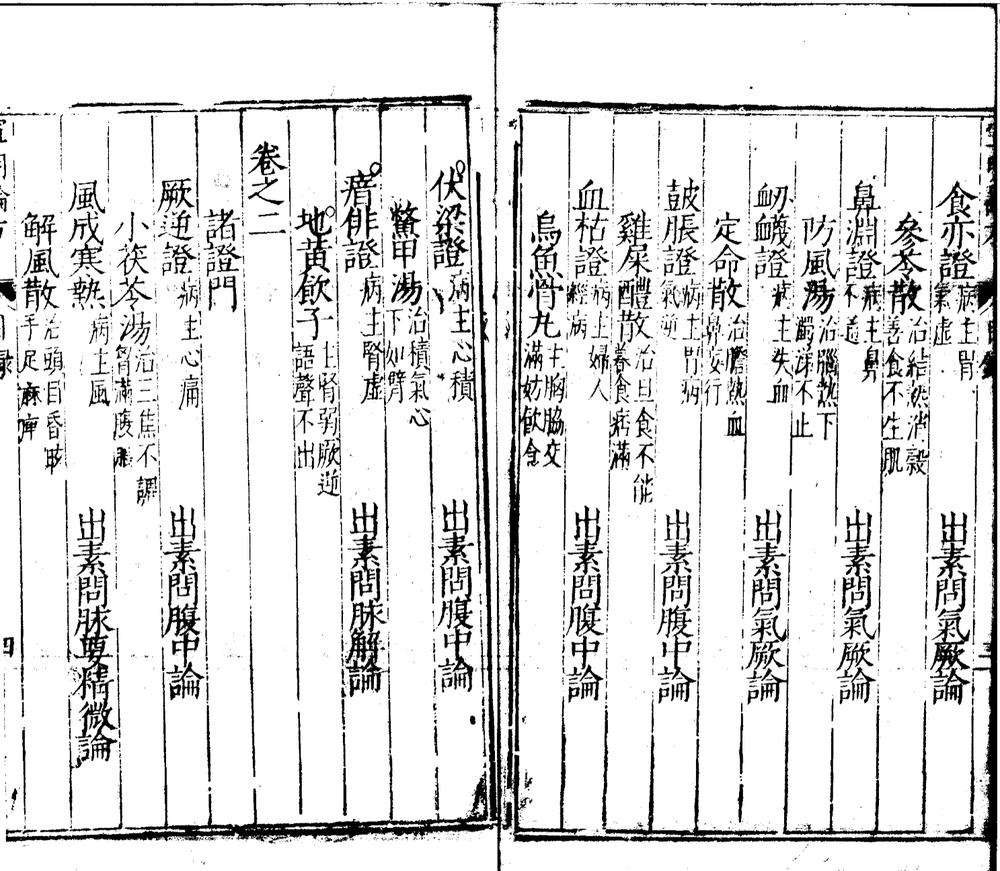 食亦證 病主胃氣虛 出素問氣厥論
參苓散 治結熱消穀善食不生肌
鼻淵證 病主鼻不 出素問氣厥論
防風湯 治腦熱下濁涕不止
衂衊證 病主失血 出素問氣厥論
定命散 治膽熱血鼻妄行
鼓脹證 病主胃病氣逆 出素問腹中論
雞屎醴散 治旦食不能暮食痞滿
血枯證 病主婦人經病 出素問腹中論
烏魚骨丸 主胸脇交滿妨飲食
伏梁證 病主心積 出素問腹中論
鱉甲湯 治積氣心下如臂
瘖俳證 病主腎虛 出素問脉解論
地黃飲子 主腎弱厥逆語聲不出
卷之二
諸證門
厥逆證 病主心痛 出素問腹中論
小茯苓湯 治三焦不調
風成寒熱 病主風 出素問脉要精微論
解風散 治頭目昏眩手足麻痺
四